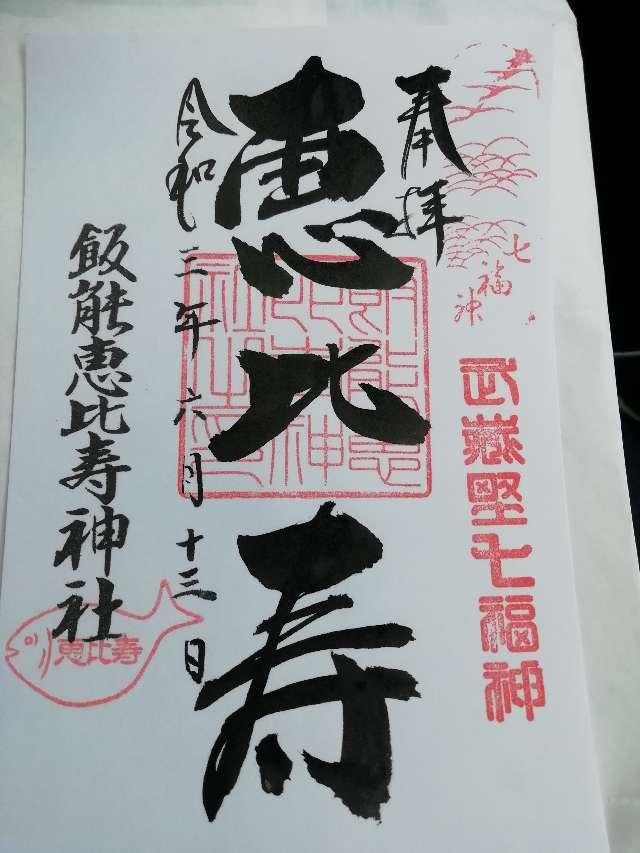 奉拝
七福神
武蔵野七福神
恵比寿
飯能恵比寿神社印
令和三年六月十三日
飯能恵比寿神社
恵比寿